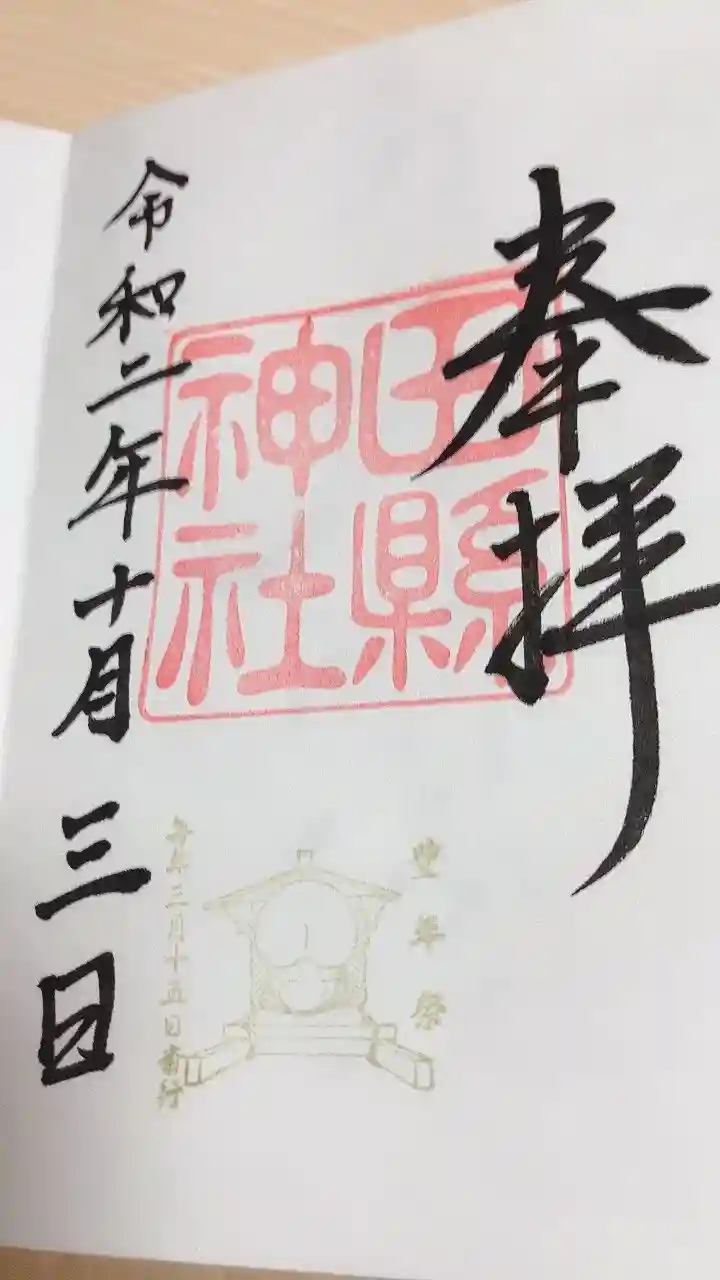 奉拝
田縣
神社
令和二年十月三日
豊年祭
毎年三月十五日斎行